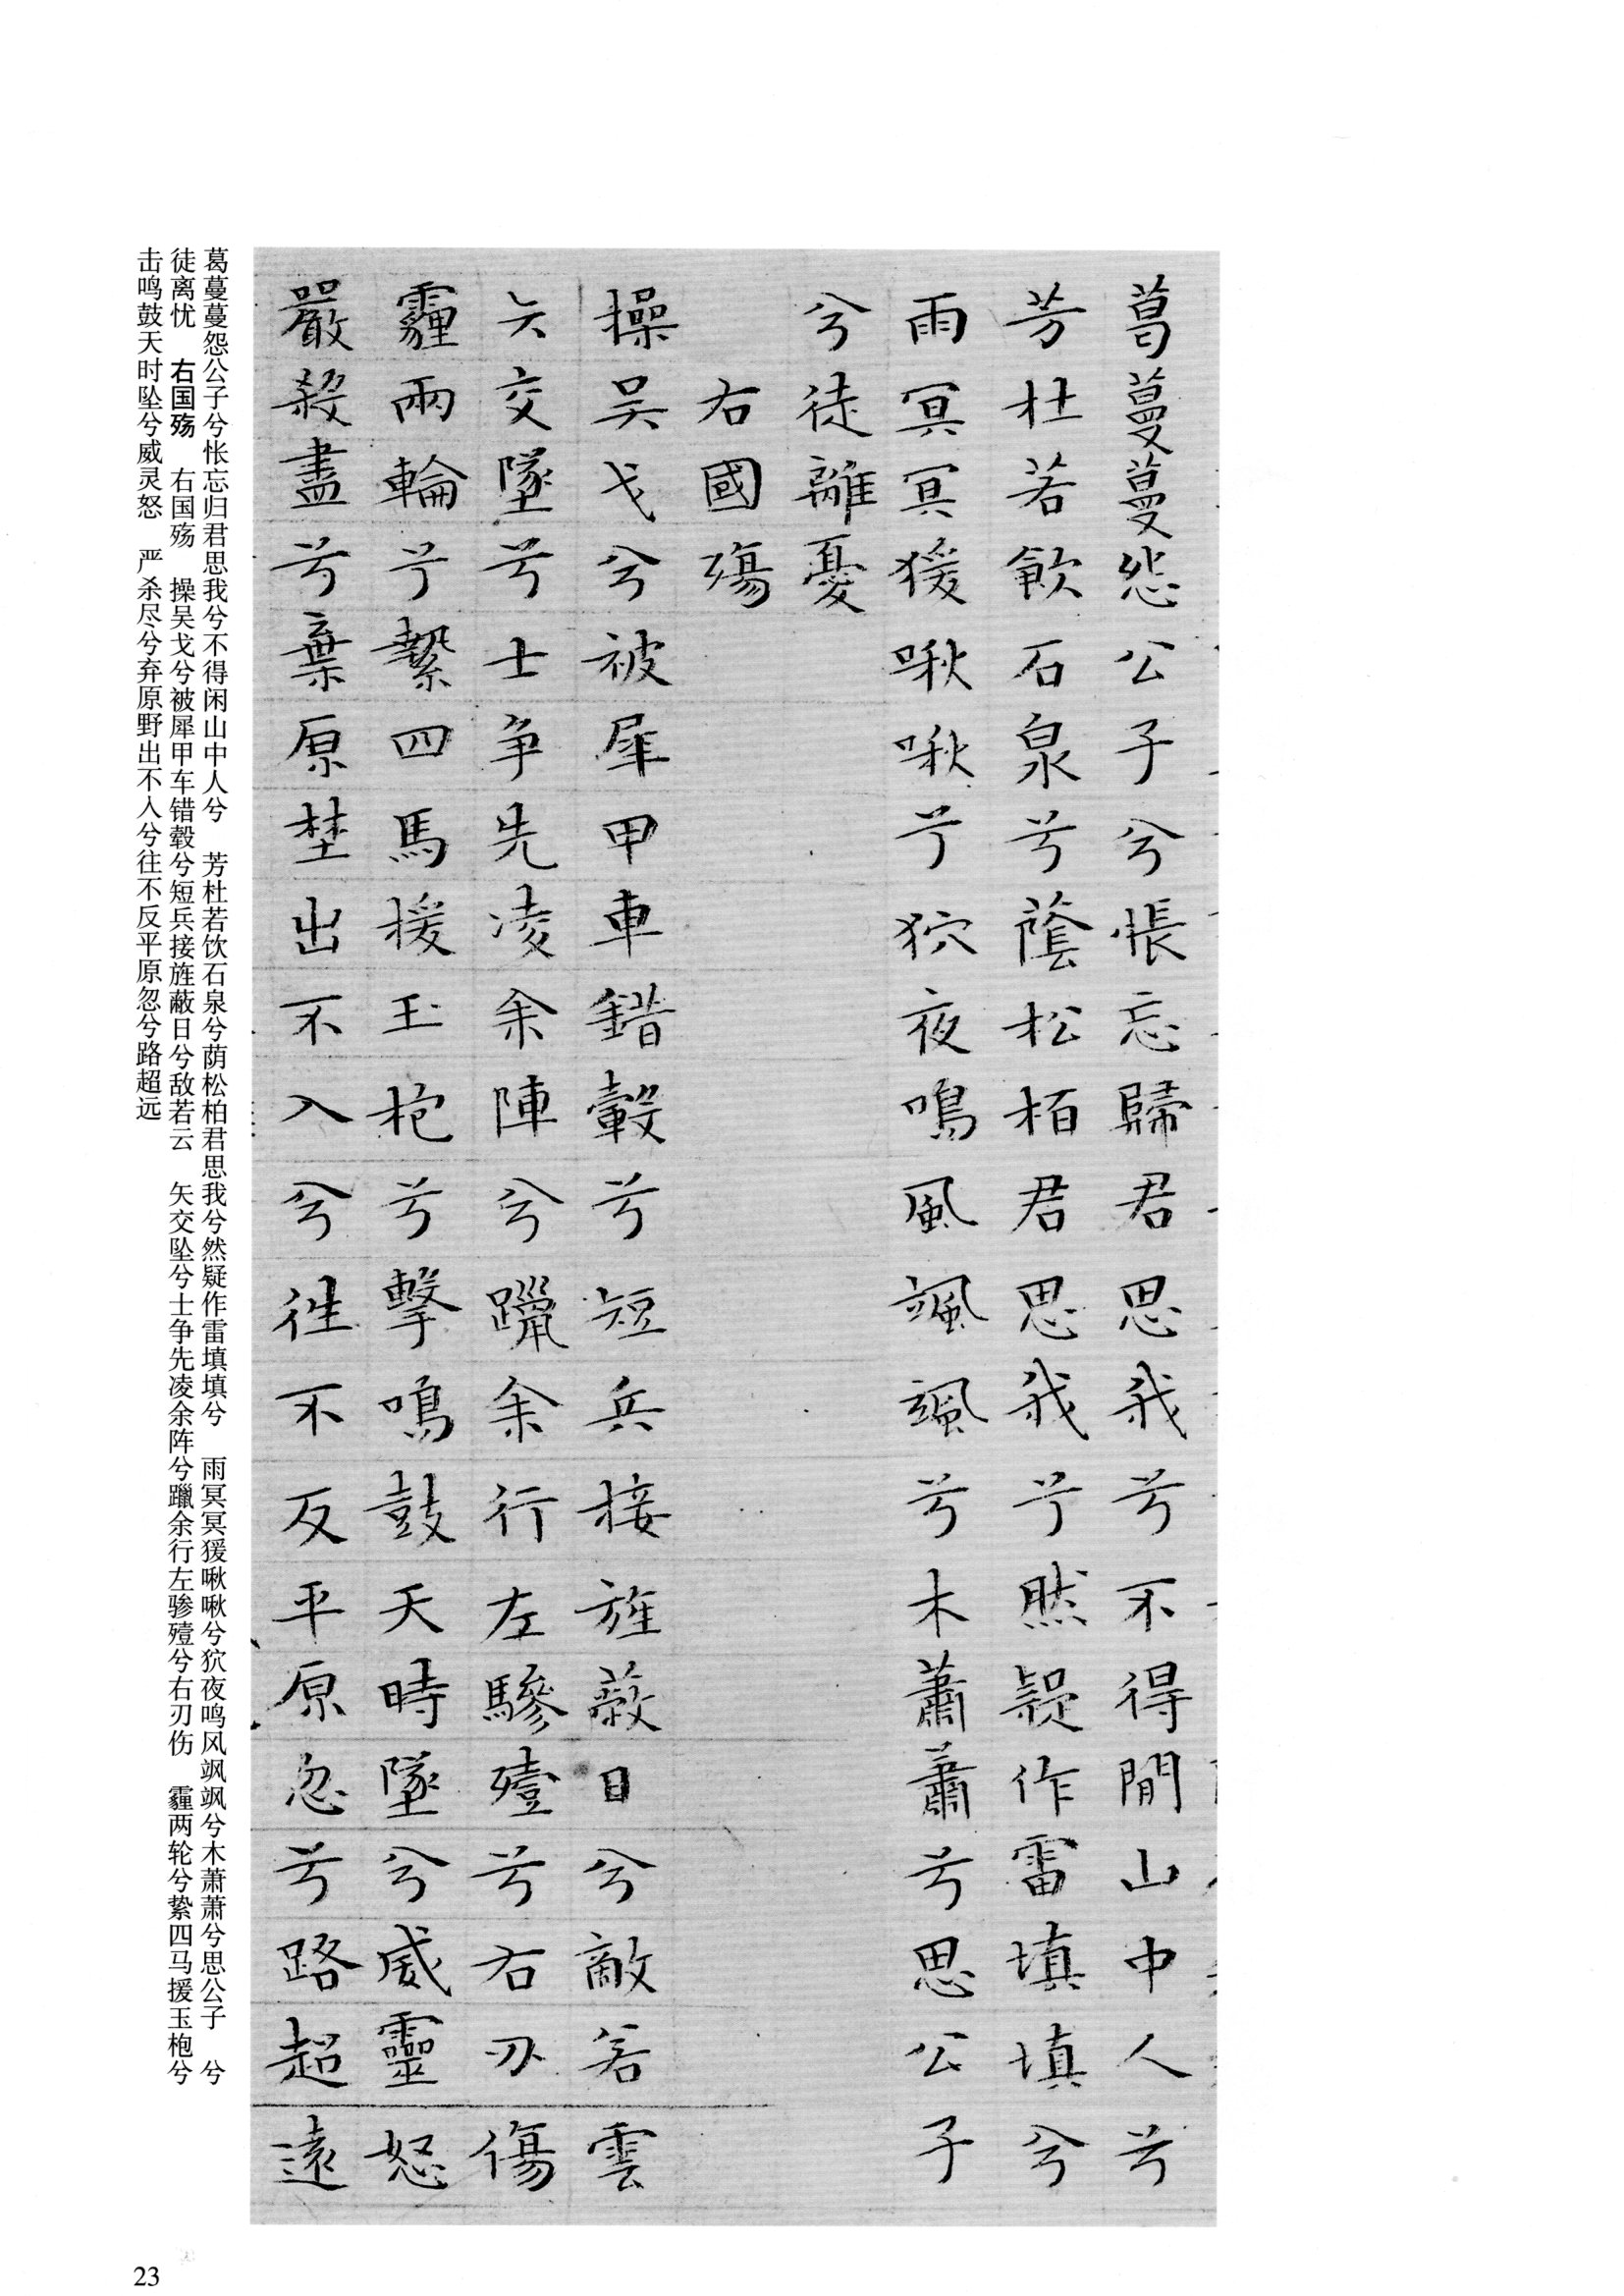 葛蔓蔓怨公子兮悵忘歸君思我兮不得閒山中人兮
芳杜若飲石泉兮蔭松栢君思我兮然疑作雷填填兮
雨冥冥猨啾啾兮狖夜鳴風颯颯兮木蕭蕭兮思公子
兮徒離憂
右國殤
操吴戈兮被犀甲車錯轂兮短兵接旌蔽日兮敵若雲
矢交墜兮士争先凌余陣兮躐余行左驂殪兮右刃傷
霾兩輪兮縶四馬援玉枹兮擊鳴鼓天時墜兮威靈怒
嚴殺盡兮棄原埜出不入兮往不反平原忽兮路超遠
葛蔓蔓怨公子兮怅忘归君思我兮不得闲山中人兮　芳杜若饮石泉兮荫松柏君思我兮然疑作雷填填兮　雨冥冥猨啾啾兮狖夜鸣风飒飒兮木萧萧兮思公子　兮
徒离忧　右国殇　右国殇　操吴戈兮被犀甲车错毂兮短兵接旌蔽日兮敌若云　矢交坠兮士争先凌余阵兮躐余行左骖殪兮右刃伤　霾两轮兮絷四马援玉枹兮
击鸣鼓天时坠兮威灵怒　严杀尽兮弃原野出不入兮往不反平原忽兮路超远
23